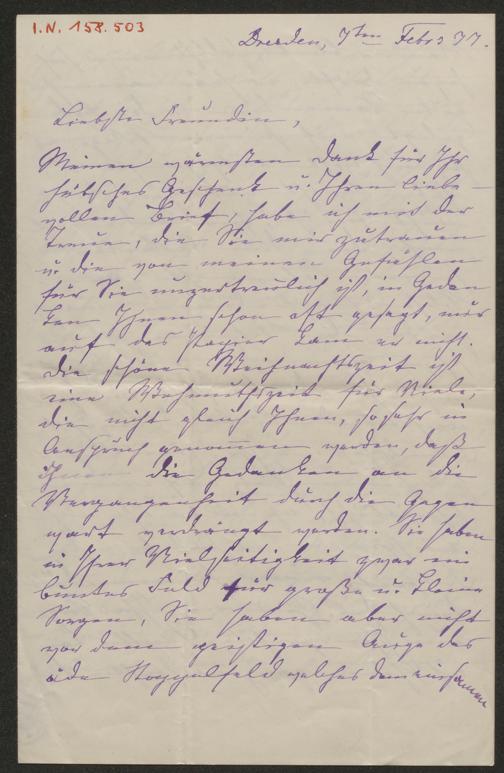 I.N. 158.503
Dresden, 7ten Febr 77.
Liebste Freundin,
Meinen wärmsten Dank für Ihr
hübsches Geschenk u. Ihren liebe-
vollen Brief, habe ich mit der
Treue, die Sie mir zutrauen
u. die von meinen Gefühlen
für Sie unzertrennlich ist, in Gedan
ken Ihnen schon oft gesagt, nur
auf das Papier kam er nicht.
Die schöne Weihnachtszeit ist
eine Wehmuthszeit für Viele,
die nicht gleich Ihnen, so sehr in
Anspruch genommen werden, daß
die Gedanken an die
Vergangenheit durch die Gegen
wart verdrängt werden. Sie haben
in Ihrer Vielseitigkeit zwar ein
buntes Feld für große u. kleine
Sorgen, Sie haben aber nicht
vor dem geistigen Auge das
öde Stoppelfeld welches dem einsamen